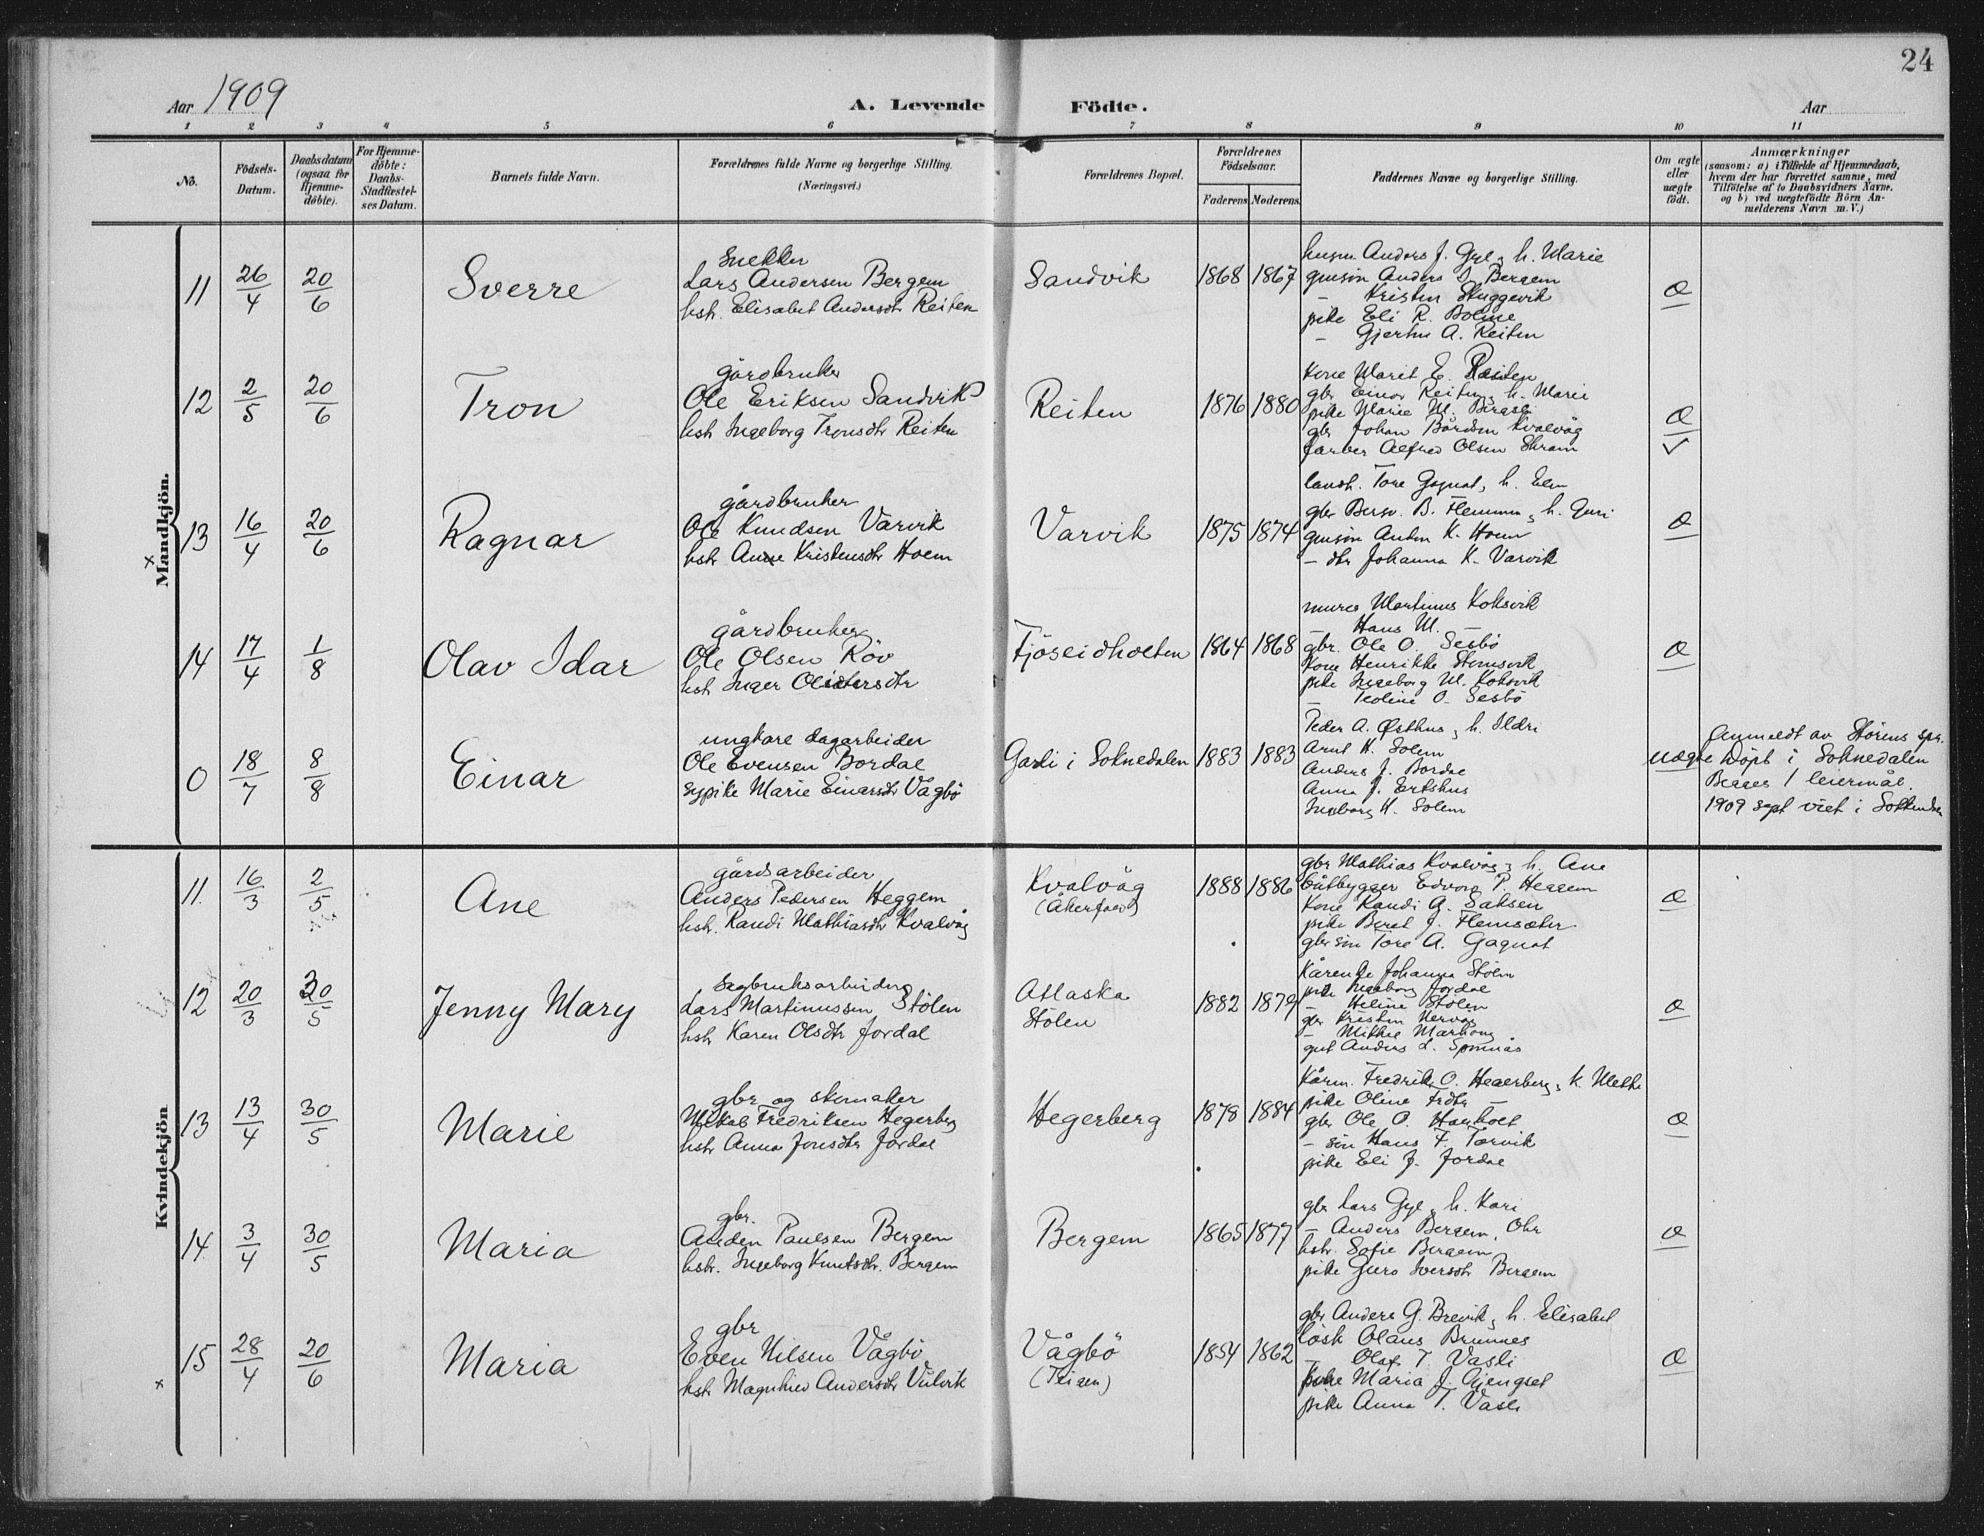 24
Aar 1909
A. Levende Födte.
Aar
1 2 3 4 5 6 7 8 9 10 11
No.
Födsels-
Datum.
Daabsdatum
(ogsaa for
Hjemme-
döbte).
For Hjemme-
döbte:
Daabs-
Stadfæstel-
ses Datum.
Barnets fulde Navn.
Forældrenes fulde Navne og borgerlige Stilling.
(Næringsvei.)
Forældrenes Bopæl.
Forældrenes
Födselsaar.
Faderens. Moderens.
Faddernes Navne og borgerlige Stilling.
Om ægte
eller
uægte
födt.
Anmærkninger
(saasom: a) i Tilfælde af Hjemmedaab,
hvem der har forrettet samme, med
Tilføielse af to Daabsvidners Navne.
og b) ved uægtefödte Börn An-
melderens Navn m. V.)
Mandkjön.
11 26/4 20/6 Sverre
Snekker
Lars Andersen Bergem
hstr. Elisabet Andersdtr Reiten
Sandvik 1868 1867
husm. Anders J. Gyl, h. Marie
gmsön Anders I. Bergem
– Kristen Stuggevik
pike Eli R. Bolme
– Gjertru A. Reiten
æ
12 2/5 20/6 Tron
gårdbruker
Ole Eriksen Sandvik
hstr Ingeborg Tronsdtr Reiten
Reiten 1876 1880
kone Marit E. Reiten
gbr Einar Reiten, h. Marie
pike Marie M. Bergsli
gbr Johan Bårdsen Kvalvåg
farver Alfred Olsen Skram
æ
13 16/4 20/6 Ragnar
gårdbruker
Ole Knudsen Varvik
hstr Anne Kristensdtr Hoem
Varvik 1875 1874
landh. Tore Gagnat, h. Elen
gbr Bersv. B. Flemmen, h. Guri
gmsön Anton K. Hoem
– dtr Johanna K. Varvik
æ
14 17/4 1/8 Olav Idar
gårdbruker
Ole Olsen Röv
hstr Inger Olidtersdtr
Fjöseidholten 1864 1868
murer Martinus Koksvik
– Hans M. –
gbr. Ole O. Sesbö
kone Henrikke Stomsvik
pike Ingeborg M. Koksvik
– Teoline O. Sesbö
æ
0 18/7 8/8 Einar
ungkare dagarbeider
Ole Evensen Bordal
sypike Marie Einarsdtr Vågbö
Garli i Soknedalen 1883 1883
Peder A. Østhus, h. Ildri
Arnt H. Solem
Anders J. Bordal
Anna J. Erkshus
Ingeborg H. Solem
uægte
Anmeldt av Störens spr.
Döpt i Soknedalen
Begges 1 leiermål.
1909 sept viet i Soknedalen
Kvindekjön
11. 16/3 2/5 Ane
gårdsarbeider
Anders Pedersen Heggem
hstr. Randi Mathiasdtr Kvalvåg
Kvalvåg
(Åkerfald)
1888 1886
gbr Mathias Kvalvåg, h. Ane
båtbygger Edvard P. Heggem
kone Randi G. Saksen
pike Beret J. Flemsæter
gbr sön Tore A. Gagnat
æ
12 20/3 30/5 Jenny Mary
Sagbruksarbeider
Lars Martinussen Stölen
hstr Karen Olsdtr Jordal
Atlaska
Stölen
1882 1879
Kårenke Johanna Stölen
pike Ingeborg Jordal
– Heline Stölen
gbr Kristen Nervåg
– Mikkel Marhaug
gut Anders L. Sponnås
æ
13 13/4 30/5 Marie
gbr og skomaker
Mikal Fredriksen Hegerberg
hstr Anna Jonsdtr Jordal
Hegerberg 1878 1884
Kårm. Fredrik O. Hegerberg, k. Mette
pike Oline Frdtr –
gbr Ole O. Hanholt
– sön Hans F. Torvik
pike Eli J. Jordal
æ
14. 3/4 30/5 Maria
gbr.
Anden Paulsen Bergem
hstr. Ingeborg Knutsdtr. Bergem
Bergem 1865 1877
gbr Lars Gyl, h. Kari
– Anders Bergem,
hstr. Sofie Bergem
pike Guro Iversdtr Bergem
æ
15 28/4 20/6 Maria
gbr
Even Nilsen Vågbö
hstr Magnhild Andersdtr Vulvik
Vågbö
(Teigen)
1854 1862
gbr Anders G. Brevik, h. Elisabet
lösk Olaus Brunnes
– Olaf T. Vasli
pike Maria J. Gjengset
pike Anna T. Vasli
æ